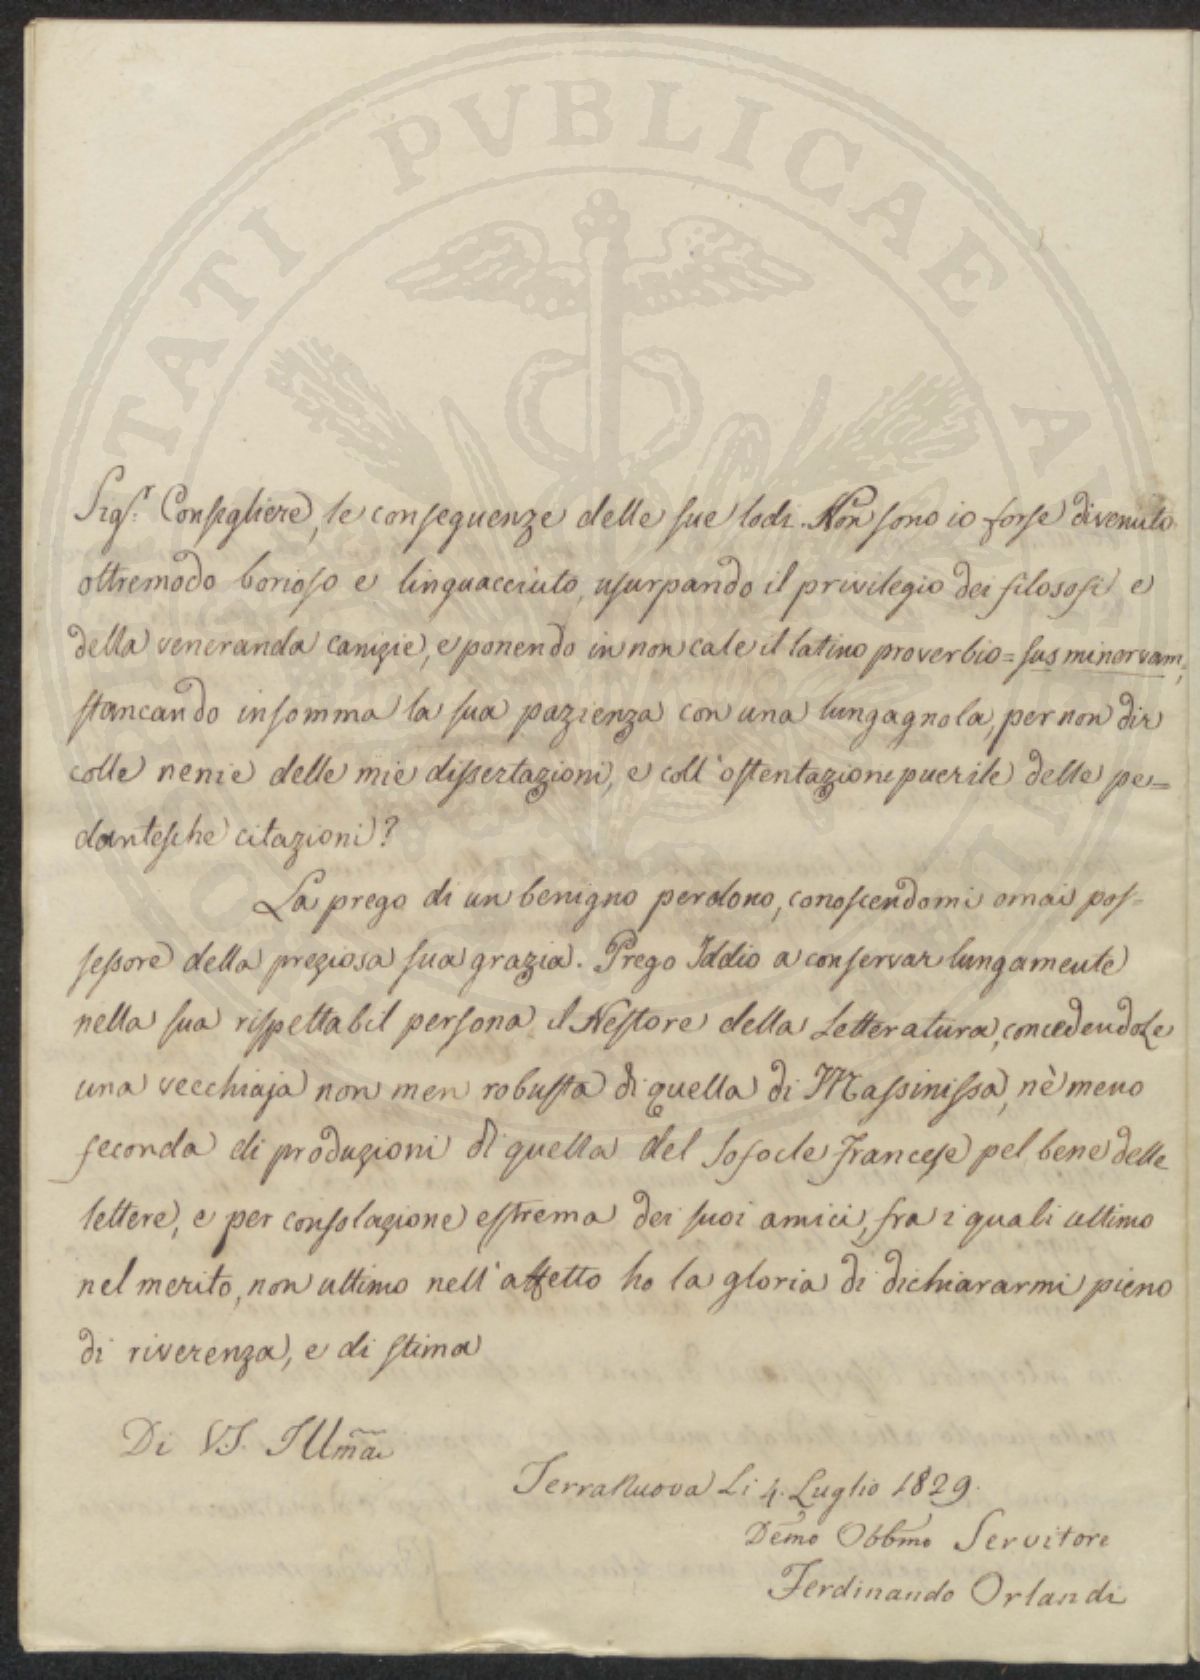 PVBLICAE
TATI
Sig.r Consigliere, le conseguenze delle sue lodi. Non sono io forse divenuto
oltremodo borioso e linguacciuto, usurpando il privilegio dei filosofi e
della veneranda canizie, e ponendo in non cale il latino proverbio = sus minervam,
stancando insomma la sua pazienza con una lungagnola, per non dir
colle nenie delle mie dissertazioni, e coll'ostentazione puerile delle pe=
dantesche citazioni?
La prego di un benigno perdono, conoscendomi omai pos-
sessore della preziosa sua grazia. Prego Iddio a conservar lungamente
nella sua rispettabil persona il Nestore della Letteratura, concedendoLe
una vecchiaja non men robusta di quella di Massinissa, nè meno
feconda di produzioni di quella del Sofocle Francese pel bene delle
lettere, e per consolazione estrema dei suoi amici, fra i quali ultimo
nel merito, non ultimo nell'affetto ho la gloria di dichiararmi pieno
di riverenza, e di stima
Di V.S. Illma
TerraNuova Li 4. Luglio 1829.
Demo Obbmo Servitore
Ferdinando Orlandi